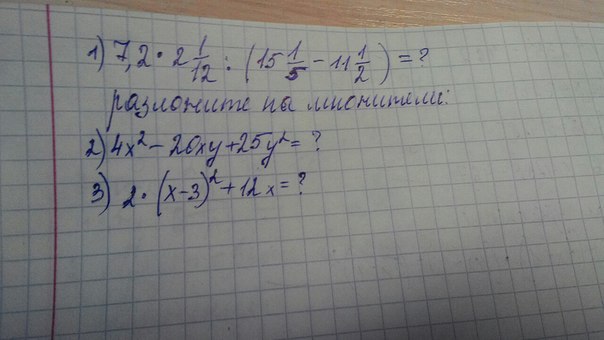 1) 7,2 · 2 1/12 : (15 1/5 - 11 1/2) = ?
разложите на множители:
2) 4x² - 20xy + 25y² = ?
3) 2 · (x-3)² + 12x = ?